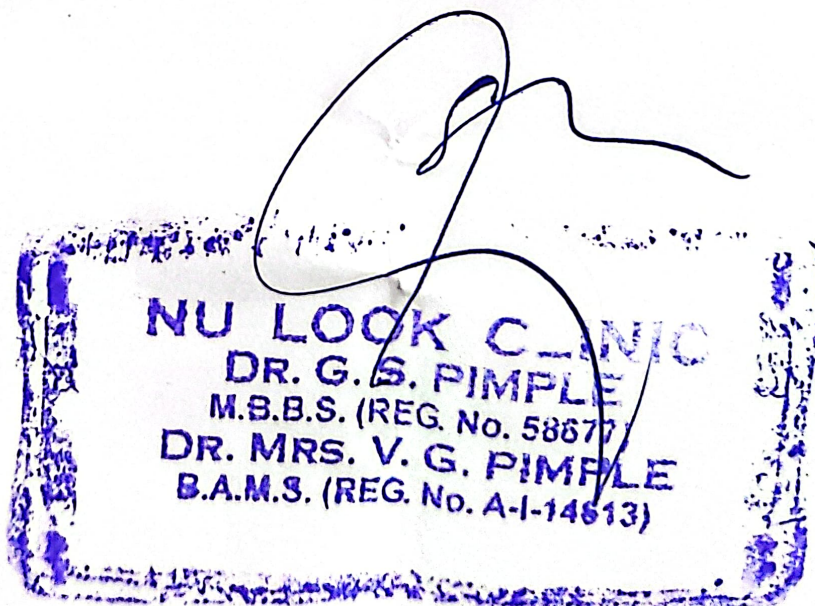 NU LOOK CLINIC
DR. G. S. PIMPLE
M.B.B.S. (REG. No. 58677)
DR. MRS. V. G. PIMPLE
B.A.M.S. (REG. No. A-I-14613)